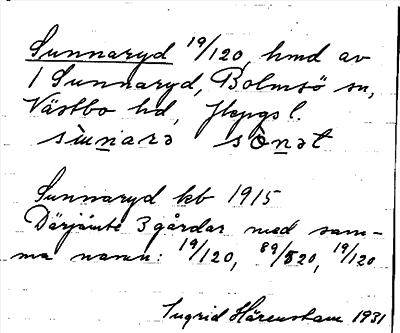 Sunnaryd 19/120, hmd av
1 Sunnaryd, Bolmsö sn,
Västbo hd, Jkpgs l.
Sunnaryd kb 1915
Därjämte 3 gårdar med sam-
ma namn: 19/120, 89/520, 19/120
Ingrid Härenstam 1931